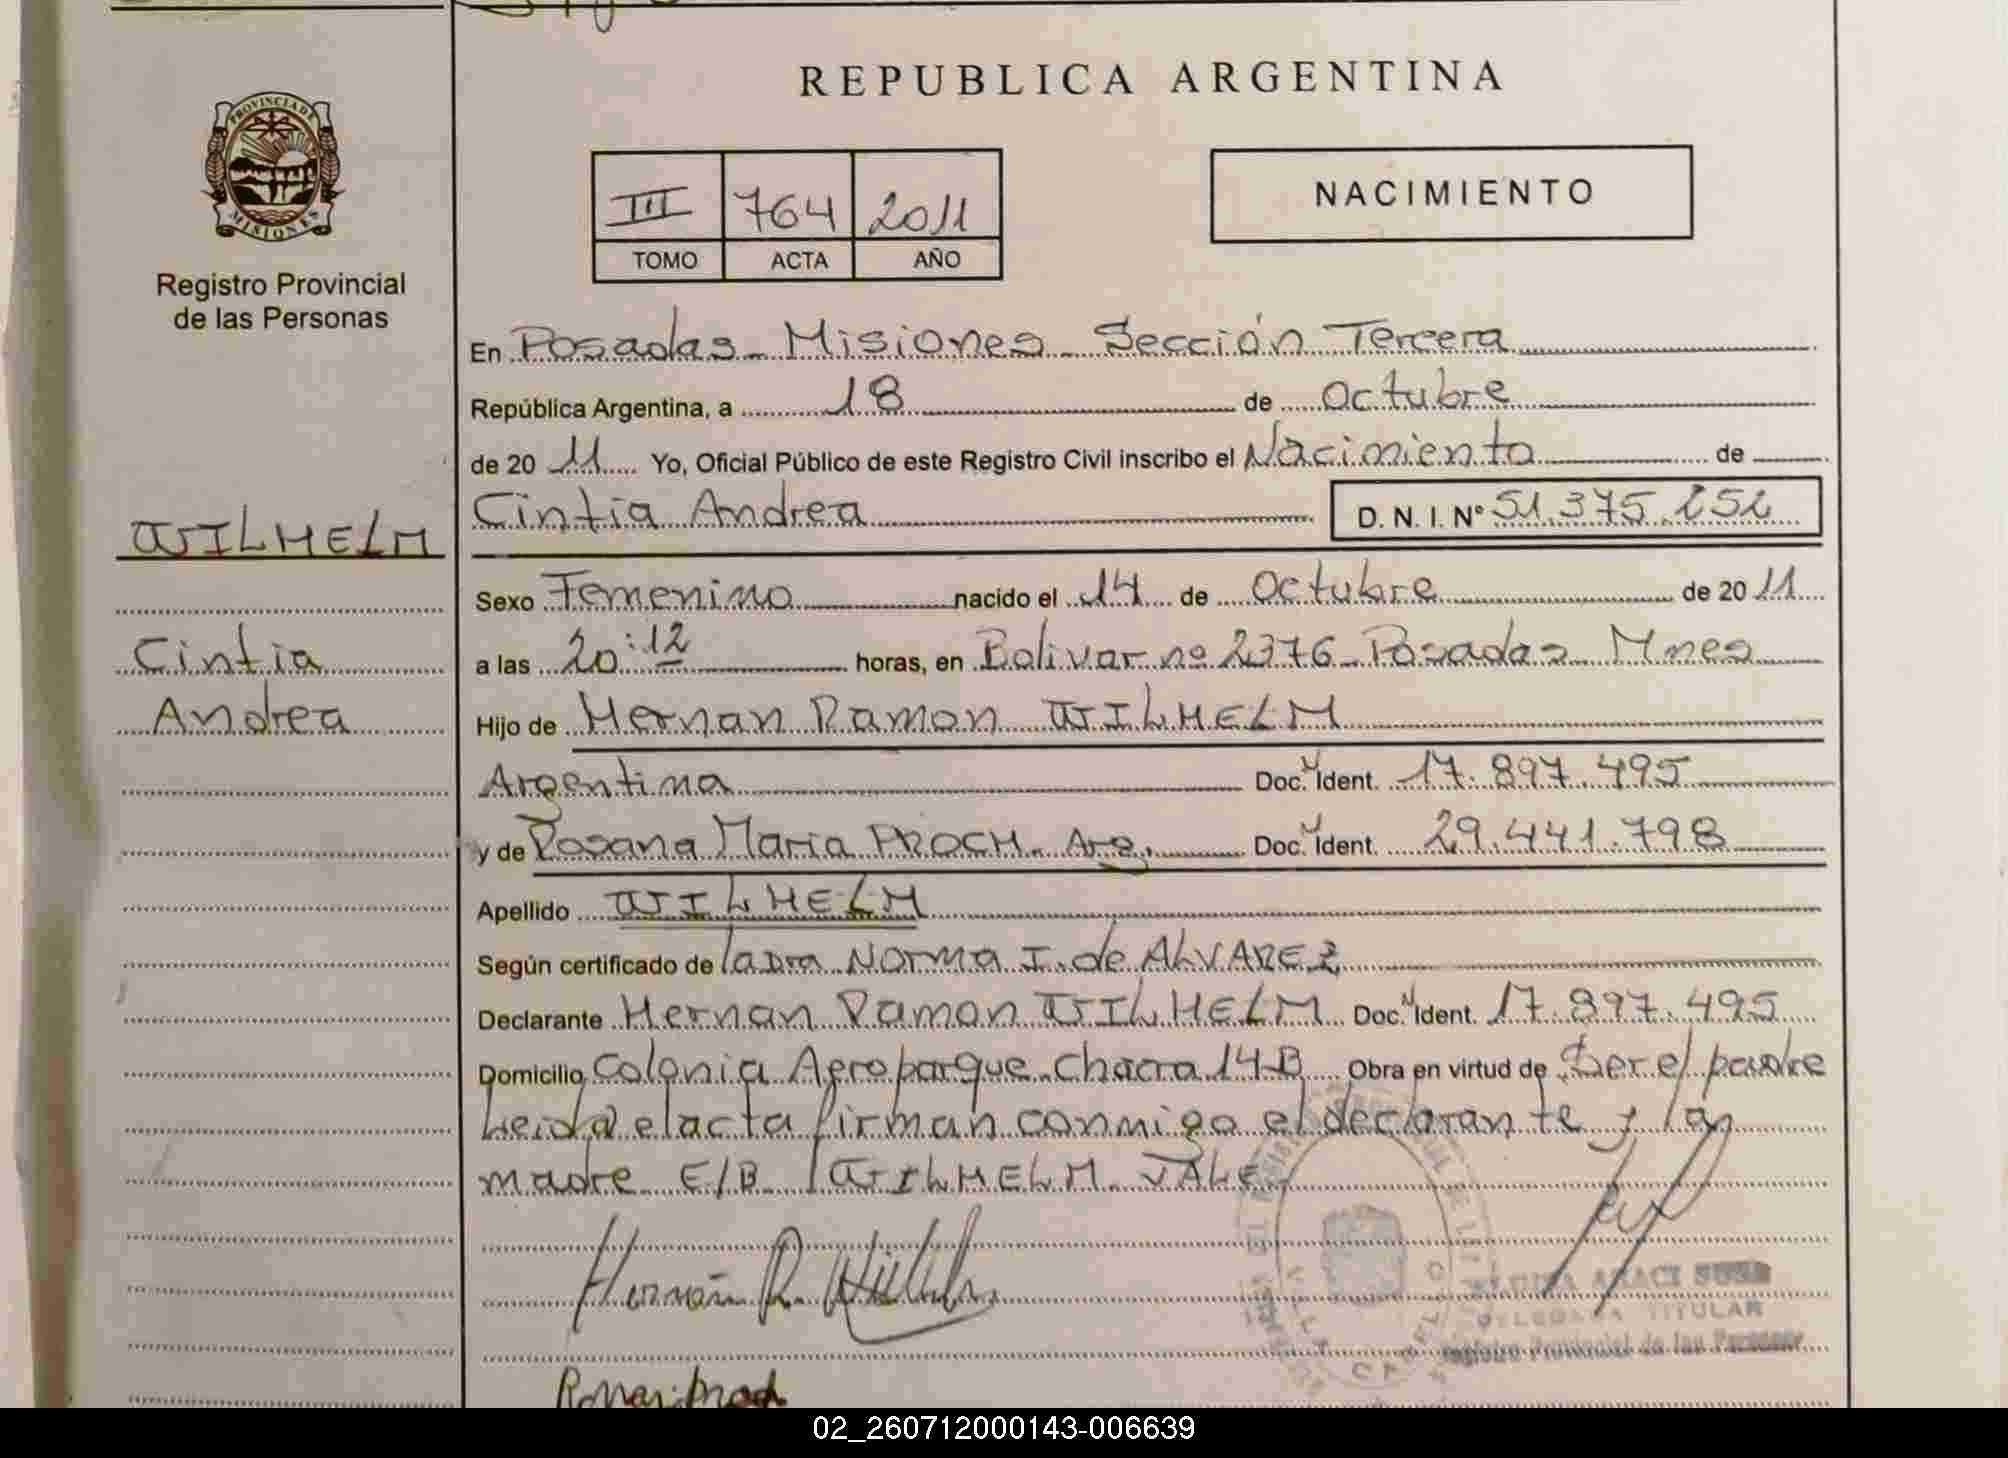 REPUBLICA ARGENTINA
PROVINCIA DE
MISIONES
Registro Provincial
de las Personas
III 764 2011
TOMO ACTA AÑO
NACIMIENTO
En Posadas Misiones Sección Tercera
República Argentina, a 18 de Octubre
de 20 11 Yo, Oficial Público de este Registro Civil inscribo el Nacimiento de
Cintia Andrea D. N. I. Nº 51.375.252
WILHELM
Cintia
Andrea
Sexo Femenino nacido el 14 de Octubre de 20 11
a las 20:12 horas, en Bolivar nº 2376 Posadas Mnes
Hijo de Hernan Ramon WILHELM
Argentina Doc. Ident. 17.897.495
y de Rosana Maria PROCH. Arg. Doc. Ident. 29.441.798
Apellido WILHELM
Según certificado de la Dra Norma I. de ALVAREZ
Declarante Hernan Ramon WILHELM Doc. Ident. 17.897.495
Domicilio Colonia Aeroparque Chacra 14 B Obra en virtud de Ser el padre
Leida el acta firman conmigo el declarante y la
madre E/B WILHELM VALE
Hernán R. Wilhelm
ARACI
DELEGADA TITULAR
Registro Provincial de las Personas
02_260712000143-006639